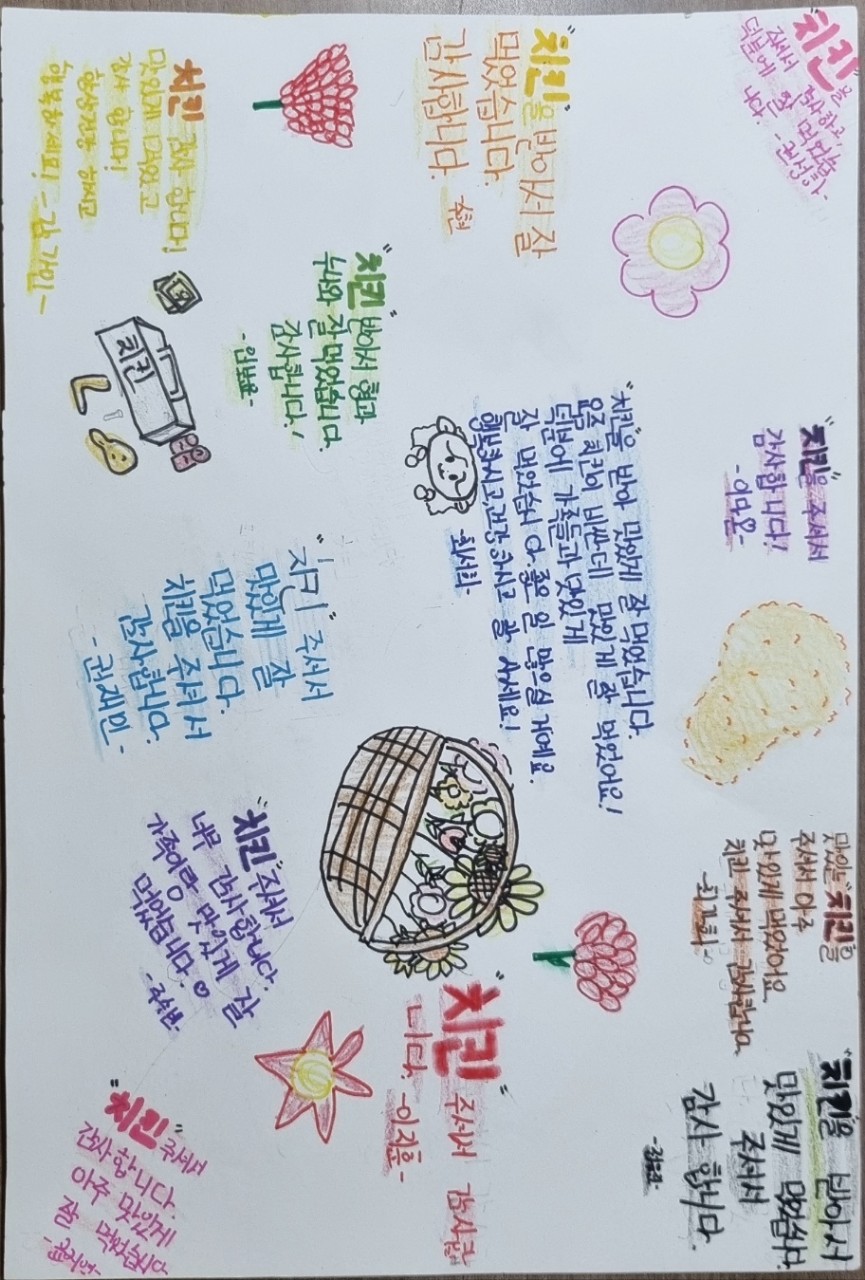 "치킨"을
덕분에
"치킨"을 받아서 잘
먹었습니다.
감사합니다.
치킨 감사합니다!
맛있게 먹었고
감사합니다!
항상 건강하시고
행복하세요!
"치킨" 받아서 형과
누나와 잘 먹었습니다.
감사합니다!
치킨
"치킨"을 주셔서
감사합니다!
"치킨"을 받아 맛있게 잘 먹었습니다.
요즘 치킨이 비싼데 맛있게 잘 먹었어요!
덕분에 가족들과 맛있게
잘 먹었습니다. 좋은 일 많으실 거예요.
행복하시고,건강하시고 잘 사세요!
"치킨" 주셔서
맛있게 잘
먹었습니다.
치킨을 주셔서
감사합니다.
-권재민-
맛있는 "치킨"을
주셔서 아주
맛있게 먹었어요
치킨 주셔서 감사합니다.
"치킨" 주셔서
너무 감사합니다.
가족이랑 맛있게 잘
먹었습니다.♡
"치킨" 주셔서 감사합
니다. -이지훈-
"치킨"을 받아서
맛있게 먹었습니다.
주셔서
감사합니다.
"치킨" 주셔서
감사합니다.
아주 맛있게
잘 먹었습니다